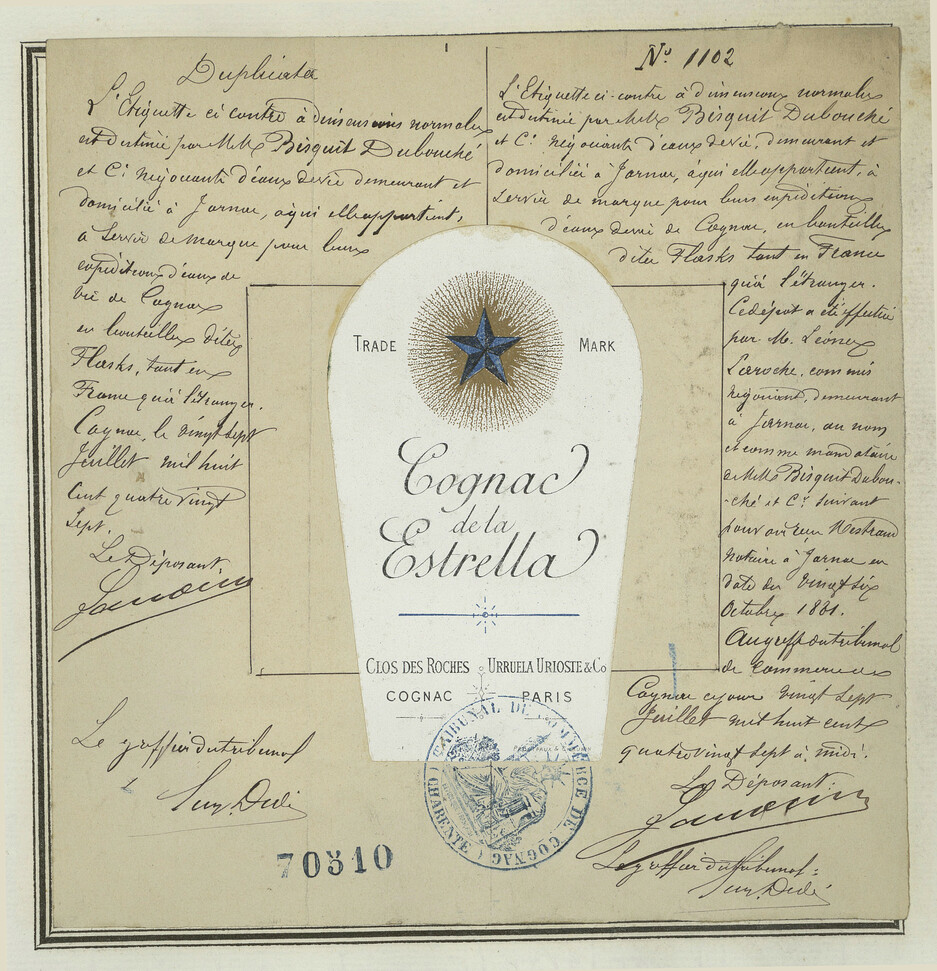 Duplicata
L'Etiquette ci contre à dimensions normales
est destinée par MM. Bisquit Dubouché
et Cie négociants d'eaux de vie demeurant et
domicilié à Jarnac, à qui elle appartient,
a servir de marque pour leurs
expéditions d'eaux de
vie de Cognac
en bouteilles dites
Flasks, tant en
France qu'à l'étranger.
Cognac, le vingt sept
Juillet mil huit
cent quatre vingt
sept.
Le Déposant,
Le greffier du tribunal
No. 1102
L'Etiquette ci-contre à dimensions normales
est destinée par MM. Bisquit Dubouché
et Cie négociants d'eaux de vie, demeurant et
domiciliés à Jarnac, à qui elle appartient, à
servir de marque pour leurs expéditions
d'eaux de vie de Cognac, en bouteilles
dites Flasks tant en France
qu'à l'étranger.
Ce dépôt a été effectué
par M. Léonce
Laroche, commis
négociant, demeurant
à Jarnac, au nom
et comme mandataire
de MM. Bisquit Dubou-
-ché et Cie suivant
pouvoir reçu Mestreau
notaire à Jarnac en
date du vingt six
Octobre 1881.
Au greffe du tribunal
de commerce de
Cognac ce jour vingt sept
Juillet mil huit cent
quatre vingt sept à midi.
Le Déposant:
Le greffier du tribunal:
TRADE MARK
Cognac
de la
Estrella
CLOS DES ROCHES URRUELA URIOSTE & Co
COGNAC PARIS
TRIBUNAL DE COMMERCE DE COGNAC (CHARENTE)
70510